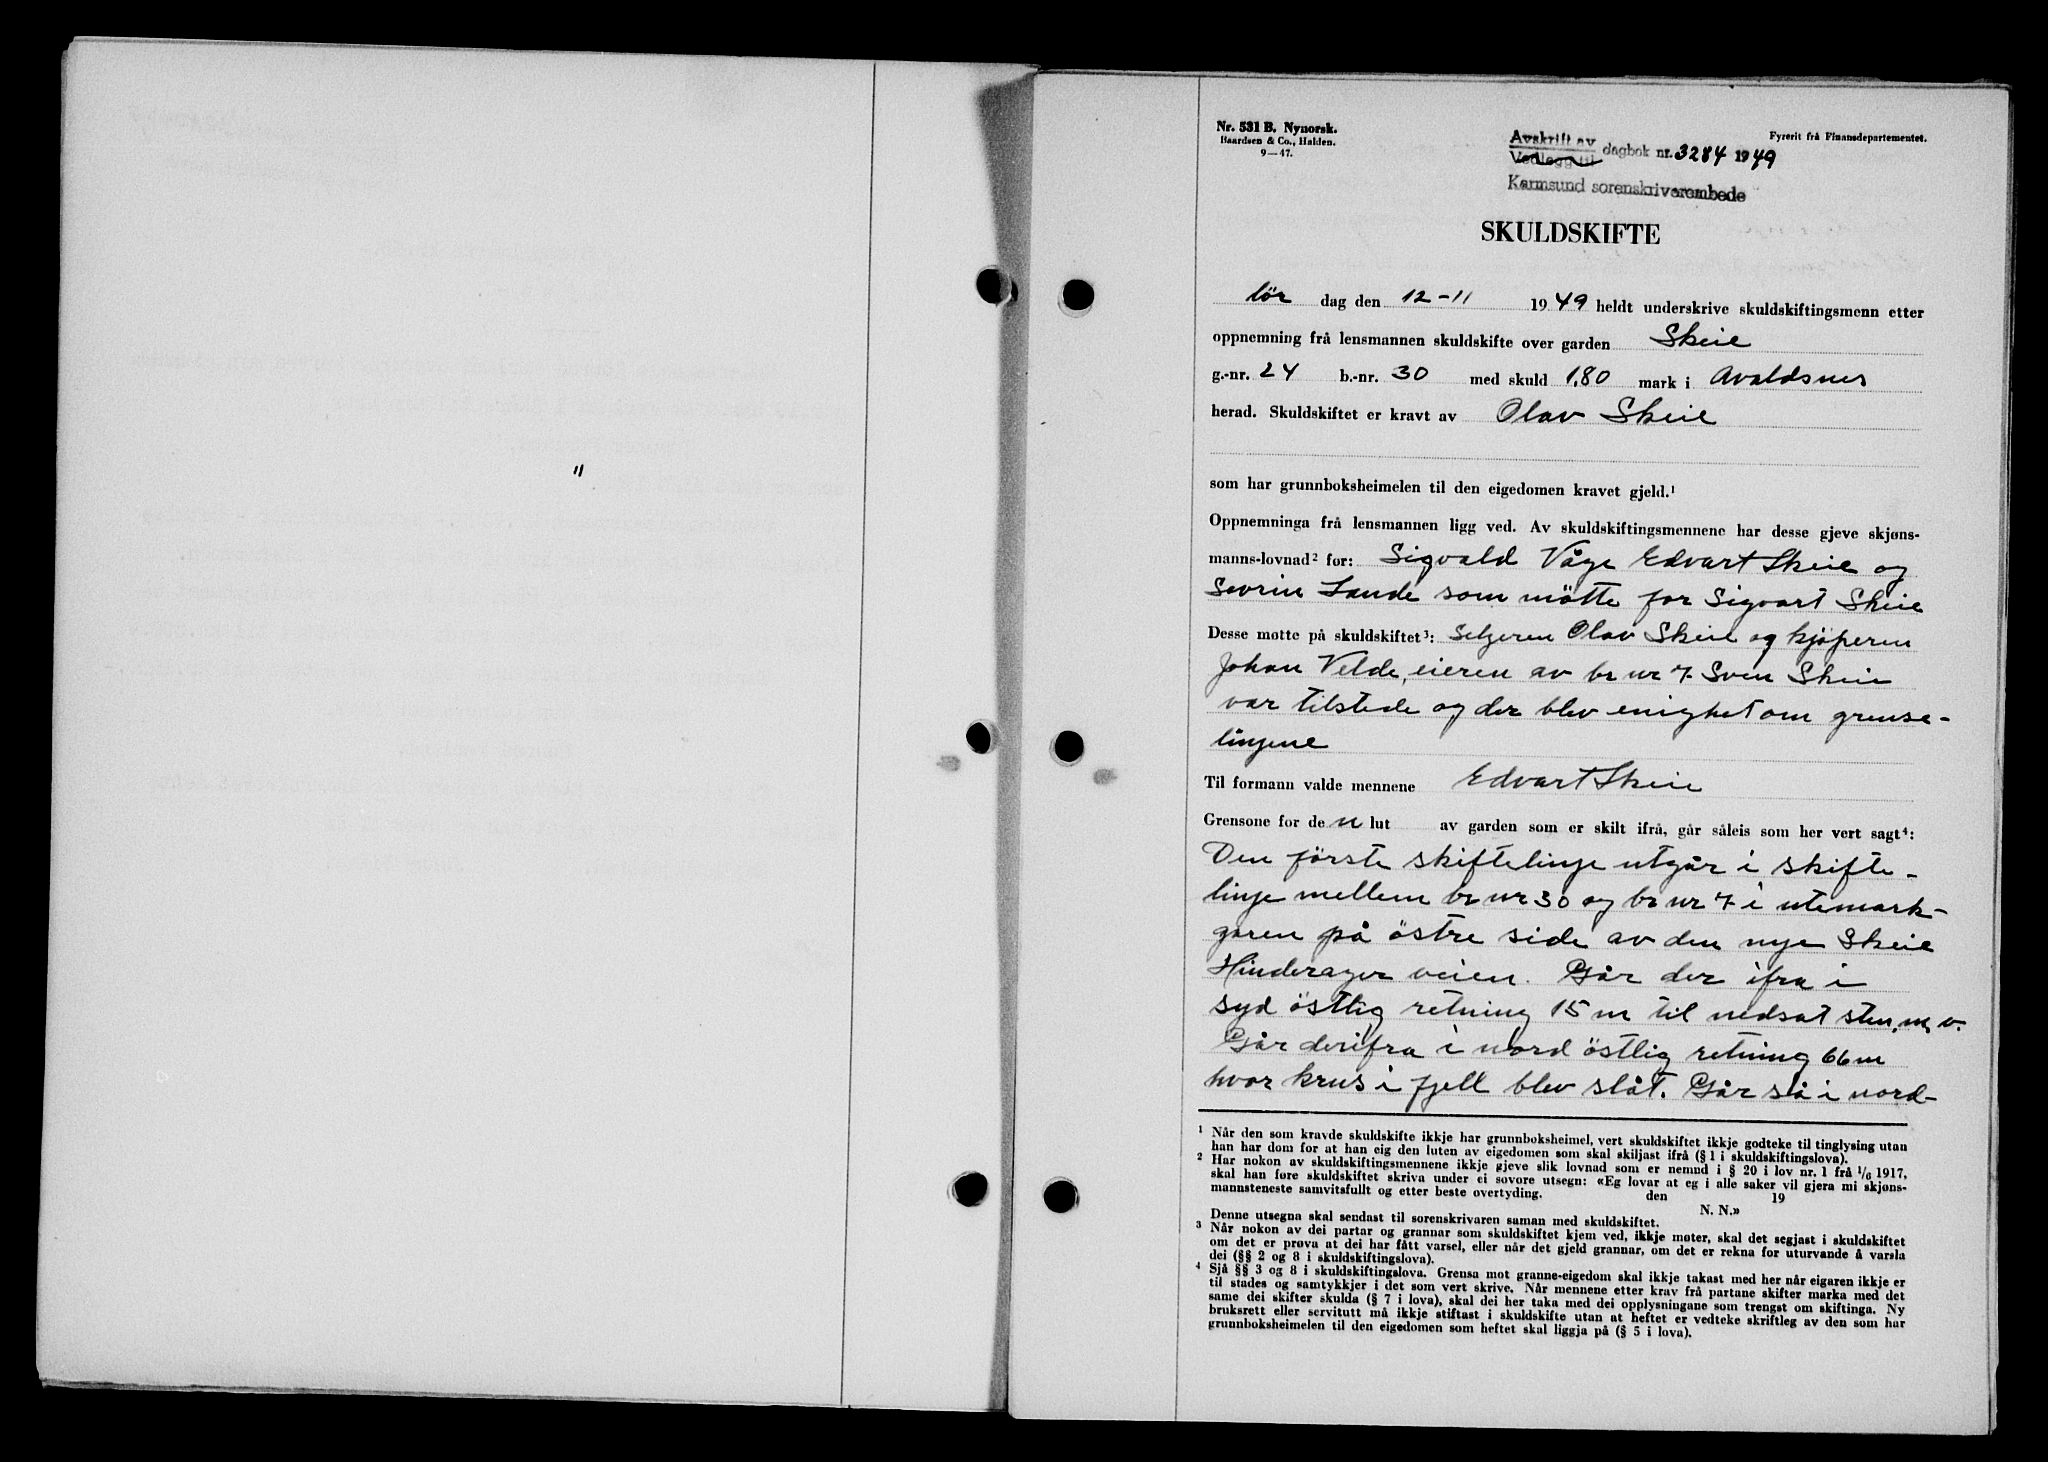 "
Nr. 531 B. Nynorsk.
Baardsen & Co., Halden.
9—47.
Avskrift av
Vedlegg til
dagbok nr. 3284 1949
Karmsund sorenskriverembede
Fyrerit frå Finansdepartementet.
SKULDSKIFTE
lör dag den 12-11 1949 heldt underskrive skuldskiftingsmenn etter
oppnemning frå lensmannen skuldskifte over garden Skeie
g.-nr. 24 b.-nr. 30 med skuld 1,80 mark i Avaldsnes
herad. Skuldskiftet er kravt av Olav Skeie
som har grunnboksheimelen til den eigedomen kravet gjeld.¹
Oppnemninga frå lensmannen ligg ved. Av skuldskiftingsmennene har desse gjeve skjøns-
manns-lovnad² før: Sigvald Våge Edvart Skeie og
Sevrin Lande som mötte for Sigvart Skeie
Desse møtte på skuldskiftet³: Selgeren Olav Skeie og kjöperen
Johan Velde, eieren av br nr 7 Sven Skeie
var tilstede og der blev enighet om grense-
linjene
Til formann valde mennene Edvart Skeie
Grensone for den lut av garden som er skilt ifrå, går såleis som her vert sagt⁴:
Den förste skiftelinje utgår i skifte-
linje mellem br nr 30 og br nr 7 i utemark-
garen på östre side av den nye Skeie
Hinderager veien. Går der ifra i
syd östlig retning 15 m til nedsat sten m. v.
Går derifra i nord östlig retning 66 m
hvor krus i fjell blev slåt. Går så i nord-
¹ Når den som kravde skuldskifte ikkje har grunnboksheimel, vert skuldskiftet ikkje godteke til tinglysing utan
han har dom for at han eig den luten av eigedomen som skal skiljast ifrå (§ 1 i skuldskiftingslova).
² Har nokon av skuldskiftingsmennene ikkje gjeve slik lovnad som er nemnd i § 20 i lov nr. 1 frå 1/6 1917,
skal han føre skuldskiftet skriva under ei sovore utsegn: «Eg lovar at eg i alle saker vil gjera mi skjøns-
mannsteneste samvitsfullt og etter beste overtyding. den 19
N. N.»
Denne utsegna skal sendast til sorenskrivaren saman med skuldskiftet.
³ Når nokon av dei partar og grannar som skuldskiftet kjem ved, ikkje møter, skal det segjast i skuldskiftet
om det er prøva at dei har fått varsel, eller når det gjeld grannar, om det er rekna for uturvande å varsla
dei (§§ 2 og 8 i skuldskiftingslova).
⁴ Sjå §§ 3 og 8 i skuldskiftingslova. Grensa mot granne-eigedom skal ikkje takast med her når eigaren ikkje er
til stades og samtykkjer i det som vert skrive. Når mennene etter krav frå partane skifter marka med det
same dei skifter skulda (§ 7 i lova), skal dei her taka med dei opplysningane som trengst om skiftinga. Ny
bruksrett eller servitutt må ikkje stiftast i skuldskifte utan at heftet er vedteke skriftleg av den som har
grunnboksheimelen til den eigedomen som heftet skal liggja på (§ 5 i lova).